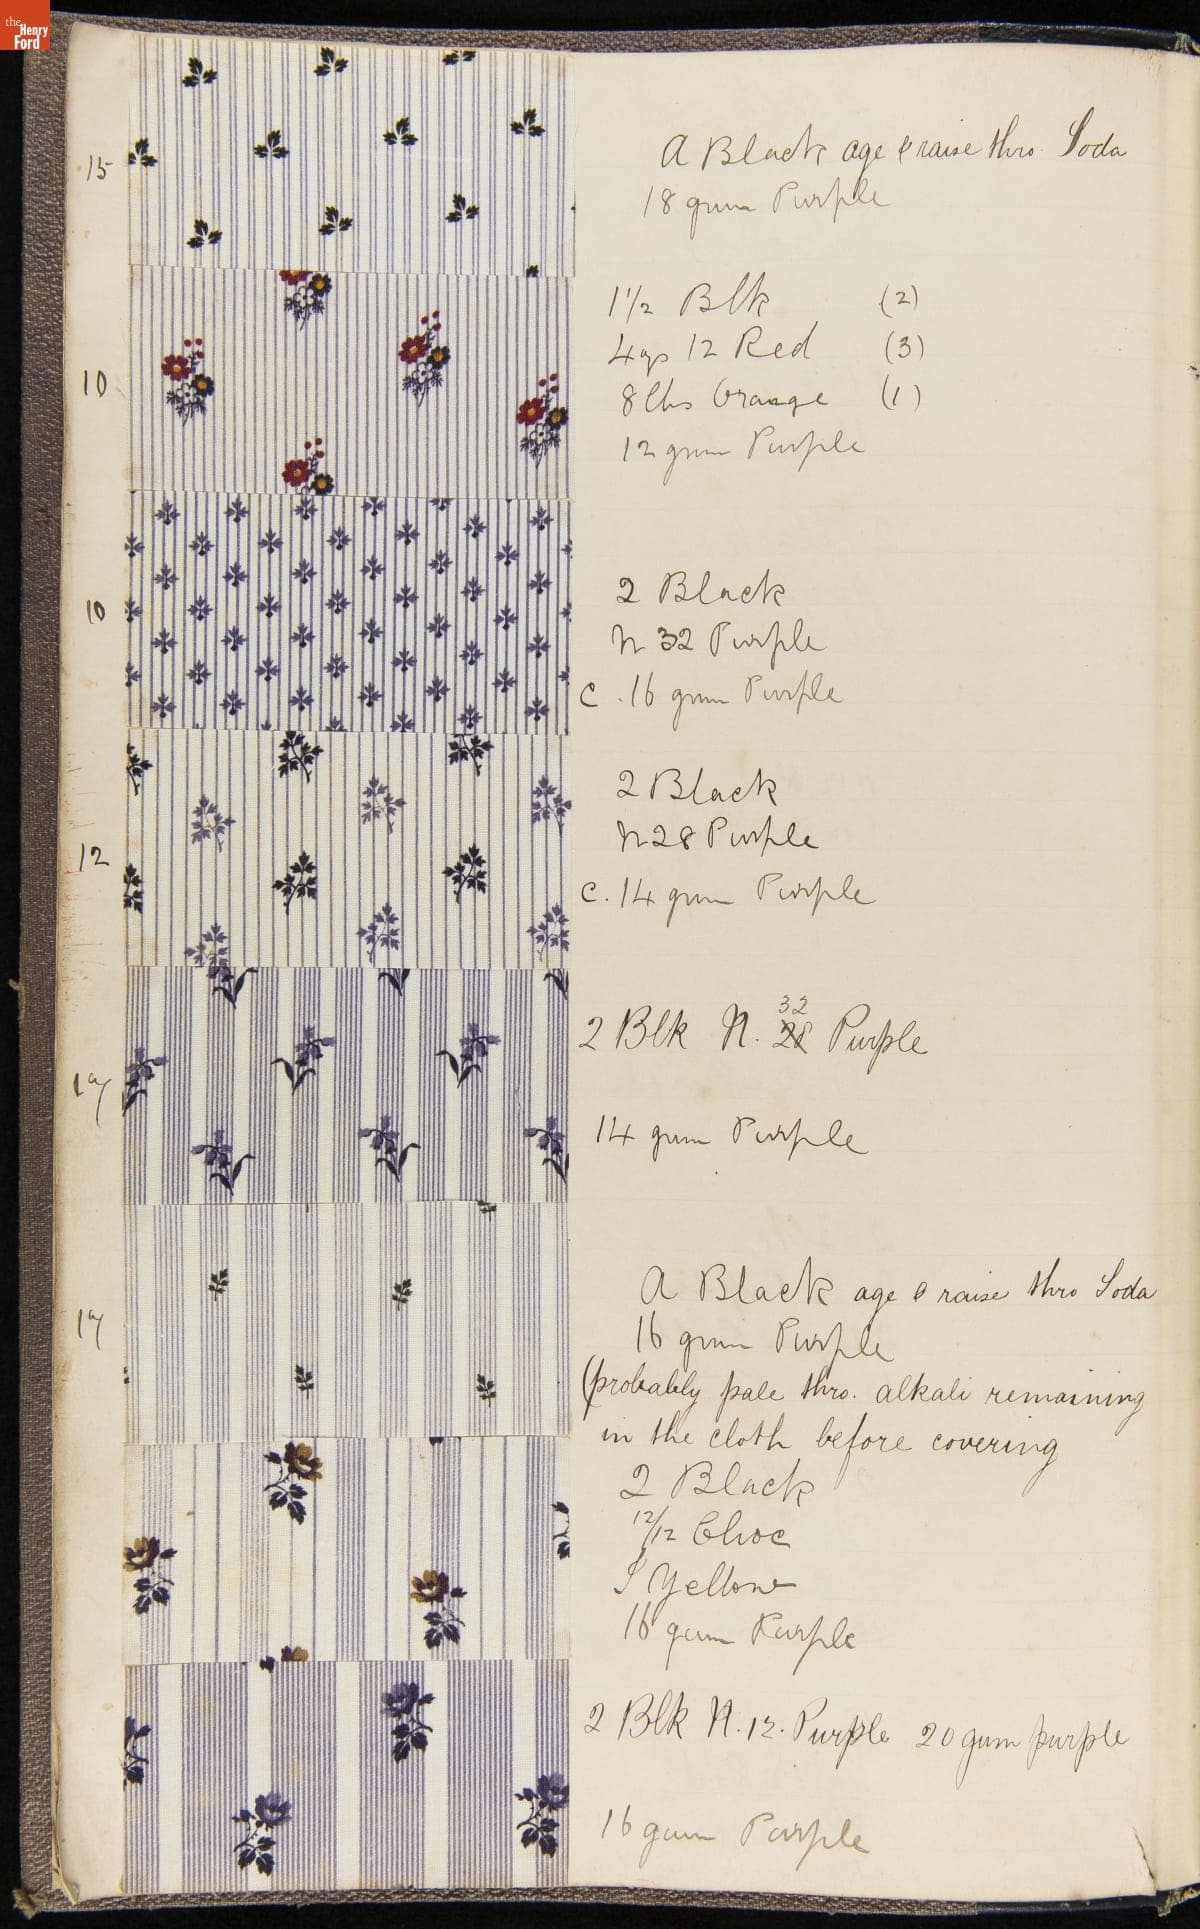 the Henry Ford
15
A Black age & raise thro. Soda
18 gum Purple
10
1 1/2 Blk (2)
4 gs 12 Red (3)
8 lbs Orange (1)
12 gum Purple
10
2 Black
N 32 Purple
C. 16 gum Purple
12
2 Black
N 28 Purple
C. 14 gum Purple
2 Blk N. 28 32 Purple
14 gum Purple
A Black age & raise thro Soda
16 gum Purple
(probably pale thro. alkali remaining
in the cloth before covering
2 Black
12/12 Choc
Yellow
16 gum Purple
2 Blk N. 12. Purple 20 gum purple
16 gum Purple